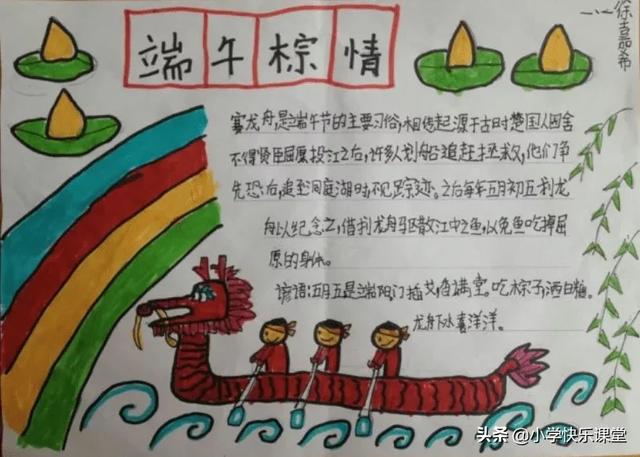 端午棕情
徐嘉希
赛龙舟,是端午节的主要习俗,相传起源于古时楚国人因舍
不得贤臣屈原投江之后,许多人划船追赶拯救,他们争
先恐后,追至洞庭湖时不见踪迹。之后每年五月初五划龙
舟以纪念之,借划龙舟驱散江中之鱼,以免鱼吃掉屈
原的身体。
谚语:五月五是端阳门插艾香满堂。吃棕子,洒白糖。
龙舟下水喜洋洋。
头条 @小学快乐课堂